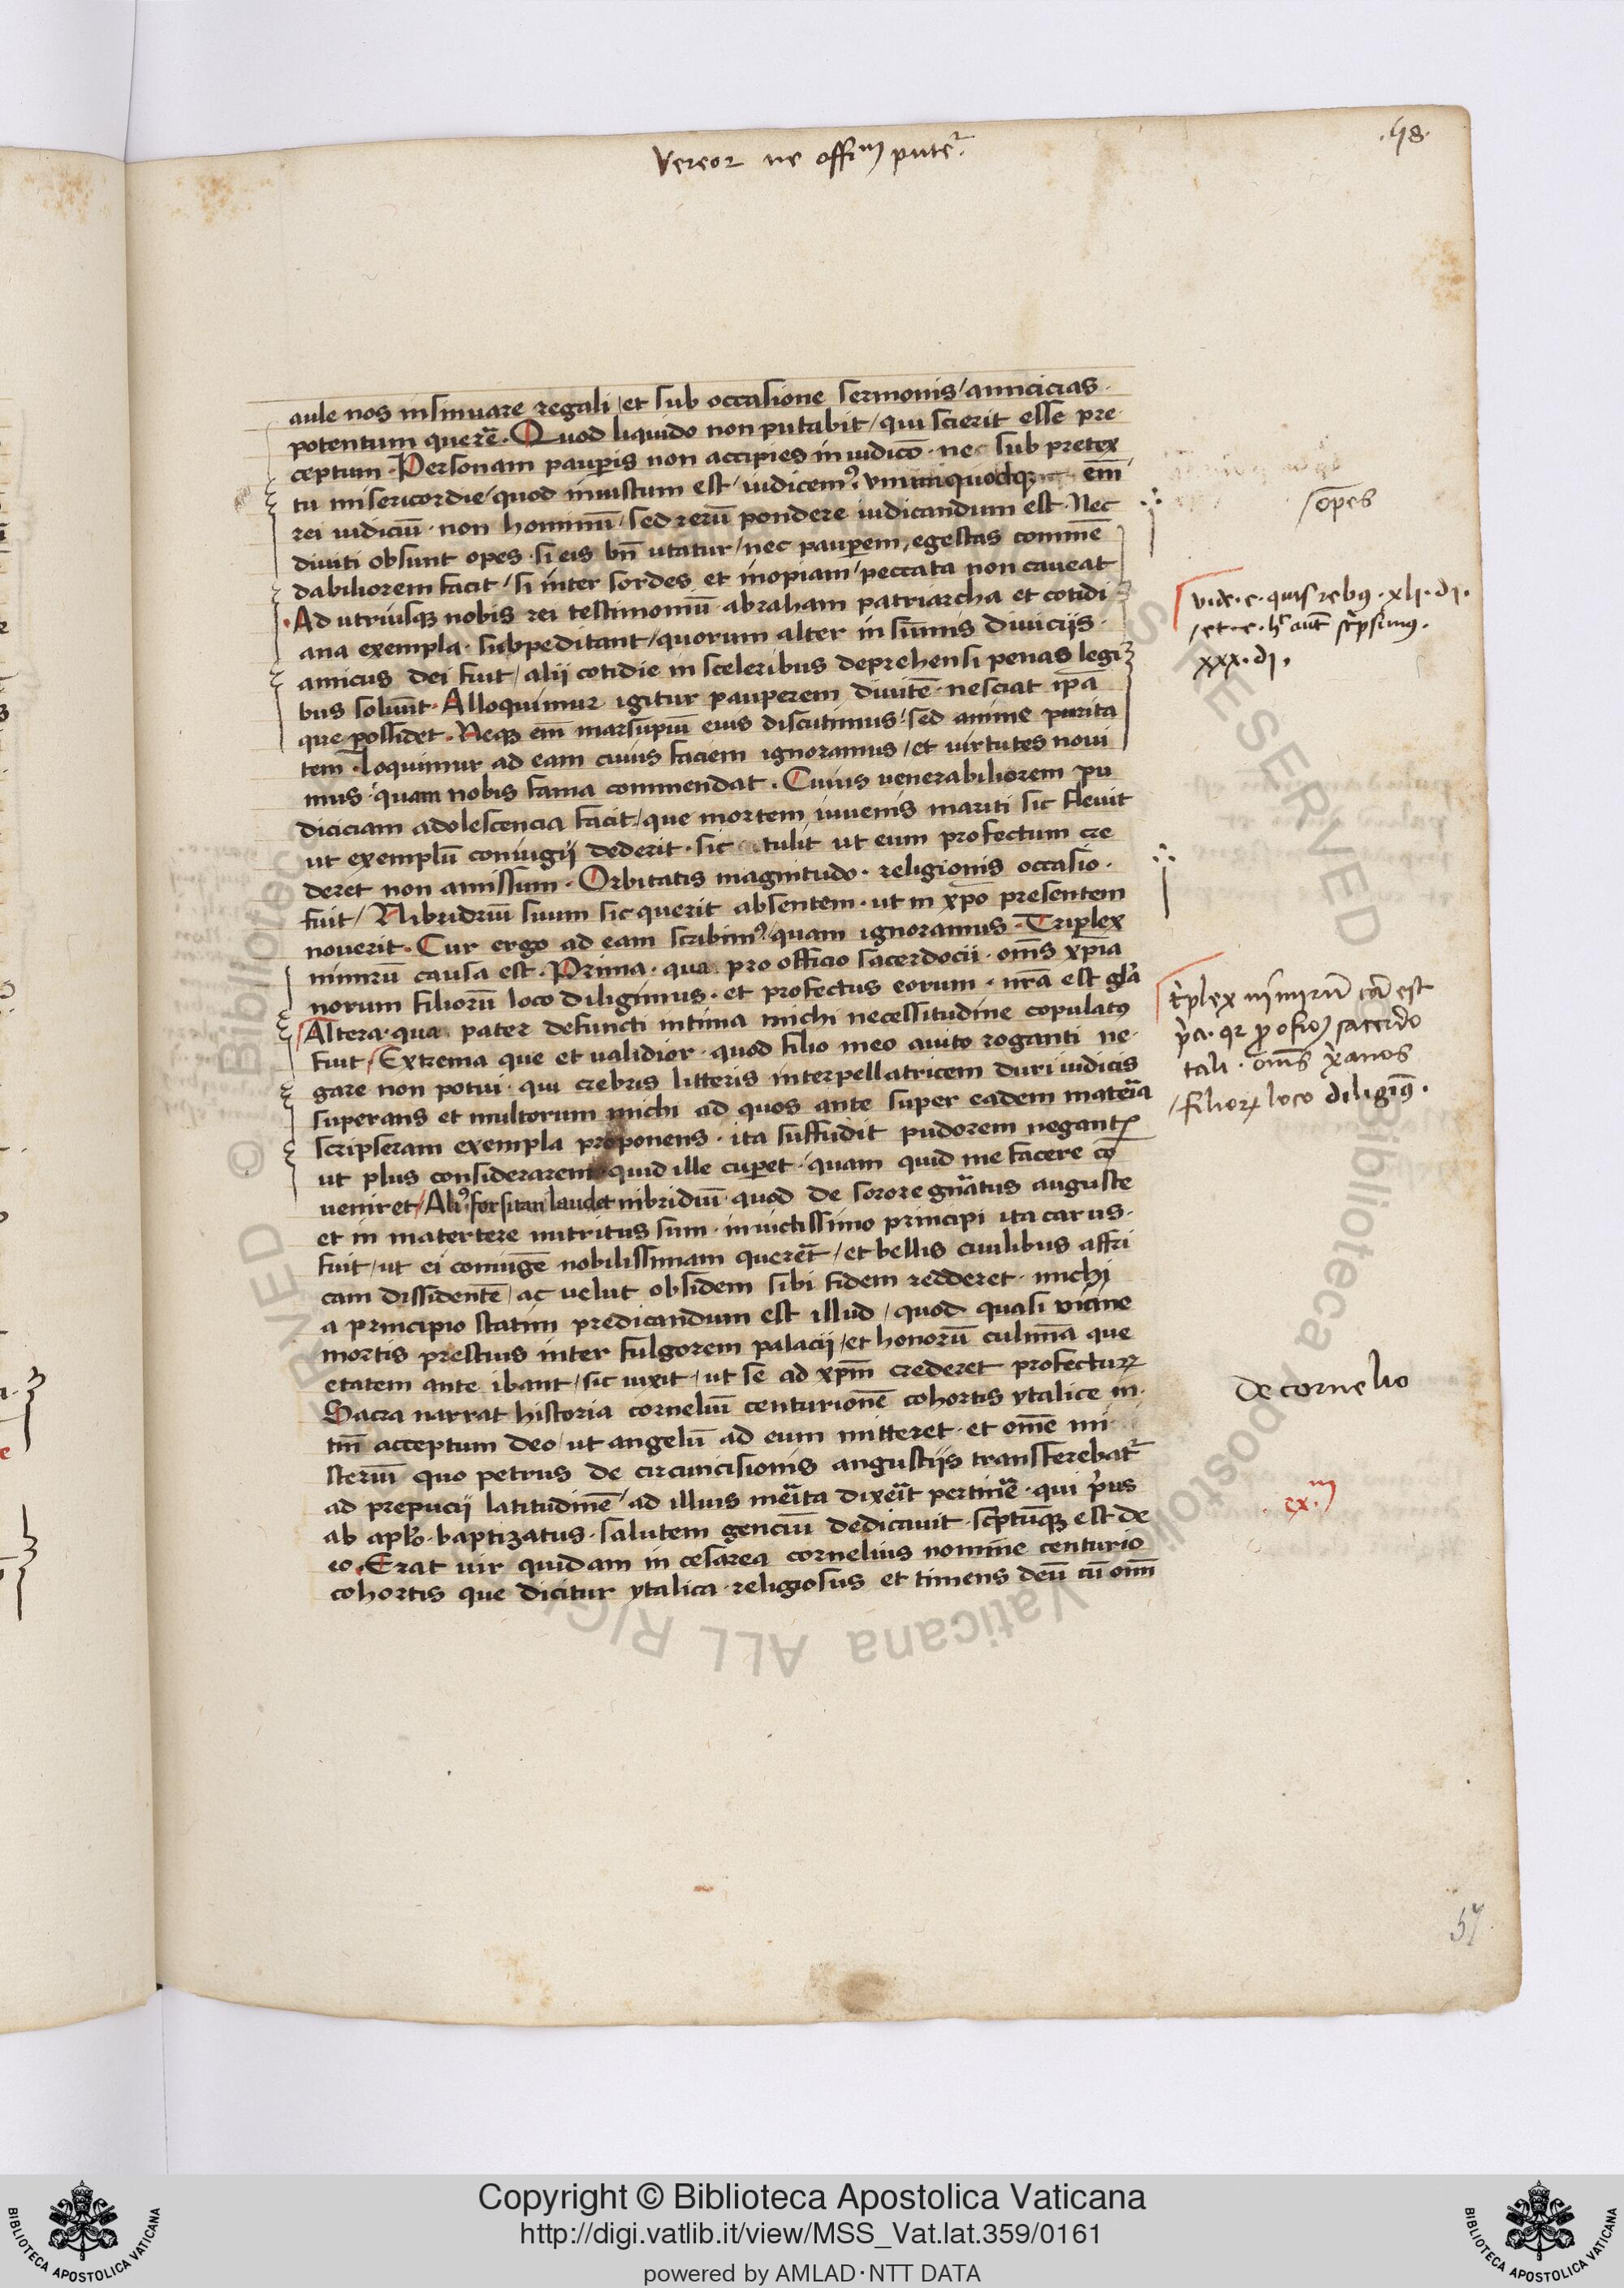 Vereor ne offiᵐ puteʳ.
.48.
aule nos insinuare regali / et sub occasione sermonis / amicicias.
potentum querē. Quod liquido non putabit / qui scierit esse pre
ceptum. Personam paupis non accipies in iudicō. nec sub pretex
tu misericordie / quod iniustum est / iudicemꝰ. unumquodqꝫ em̄
rei iudiciū. non hominū / sed rerū pondere iudicandum est. Nec
diuiti obsunt opes. si eis bn̄ utatur / nec paupem, egestas commē
dabiliorem facit / si inter sordes et inopiam / peccata non caueat
Ad utriusqꝫ nobis rei testimoniū. abraham patriarcha et cotidi
ana exempla. subpeditant / quorum alter in sūmis diuicijs.
amicus dei fuit / alij cotidie in sceleribus deprehensi penas legi
bus soluūt. Alloquimur igitur pauperem diuitē. nesciat ip̄a
que possidet. Neqꝫ em̄ marsupiū eius discutimus / sed anime purita
tem. Loquimur ad eam cuius faciem ignoramus / et uirtutes noui
mus. quam nobis fama commendat. Cuius venerabiliorem pu
diciciam adolescencia facit / que mortem iuuenis mariti sic fleuit
ut exemplū coniugij dederit. sic tulit ut eum profectum cre
deret non amissum. Orbitatis magnitudo. religionis occasio.
fuit / Nibridiū suum sic querit absentem. ut in xp̄o presentem
nouerit. Cur ergo ad eam scribimꝰ / quam ignoramus. Triplex
nimirū causa est. Prima. qua pro officio sacerdocij. om̄s xp̄ia
norum filiorū loco diligimus. et profectus eorum. nr̄a est glā
Altera. qua pater defuncti intima michi necessitudine copulatꝰ
fuit / Extrema que et ualidior. quod filio meo auito roganti ne.
gare non potui. qui crebris litteris interpellatricem duri iudicis
superans et multorum michi ad quos ante super eadem materia
scripseram exempla proponens. ita suffudit pudorem negantꝭ
ut plus considerarem quid ille cuperet. quam quid me facere cō
ueniret / Aliꝰ forsitan laudet nibridiū. quod de sorore gnatus auguste
et in matertere nutritus sinu. inuictissimo principi ita carus.
fuit / ut ei coniugē nobilissimam quereret / et bellis ciuilibus affri
cam dissidentē / ac velut obsidem sibi fidem redderet. michi
a principio statim predicandum est illud / quod quasi vicine
mortis prescius inter fulgorem palacij / et honorū culmina que
etatem ante ibant / sic uixit / ut se ad xpm̄ crederet profecturꝫ
Sacra narrat historia corneliū centurionē cohortis ytalice in.
tm̄ acceptum deo / ut angelū ad eum mitteret. et om̄e mi
steriū quo petrus de circuncisionis angustijs transferebatʳ
ad prepucij latitudinē / ad illius mēita dixeīt pertinē. qui pʳus
ab aplō. baptizatus. salutem genciū dedicauit. scptūqꝫ est de
eo. Erat uir quidam in cesarea cornelius nomine centurio
cohortis que dicitur ytalica. religiosus et timens deū cū om̄i
opes
vide. c. quis rebꝰ. xlj. dj.
et. c. hᶜ aut̄ scpsimꝰ.
xxx. dj.
tʳplex nimirū cā est
pʳa. qꝛ ꝓ offio sacerdo
tali. om̄s xʳanos
filioꝝ loco diligimꝰ.
de cornelio
exᵐ
57
Copyright © Biblioteca Apostolica Vaticana
http://digi.vatlib.it/view/MSS_Vat.lat.359/0161
powered by AMLAD·NTT DATA
BIBLIOTECA APOSTOLICA VATICANA
BIBLIOTECA APOSTOLICA VATICANA